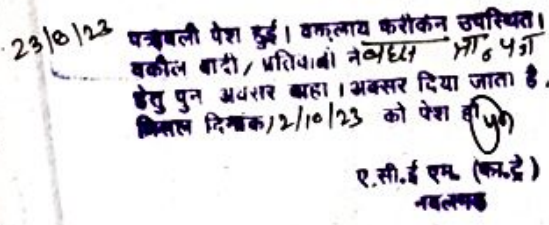 23/8/23 पत्रावली पेश हुई। वकलाय फरीकेन उपस्थित।
वकील वादी / प्रतिवादी ने बहस प्रा० पत्र
हेतु पुन अवसर चाहा। अवसर दिया जाता है,
मिसल दिनांक 12/10/23 को पेश हो
ए.सी.ई एम. (फा.ट्रे)
नवलगढ